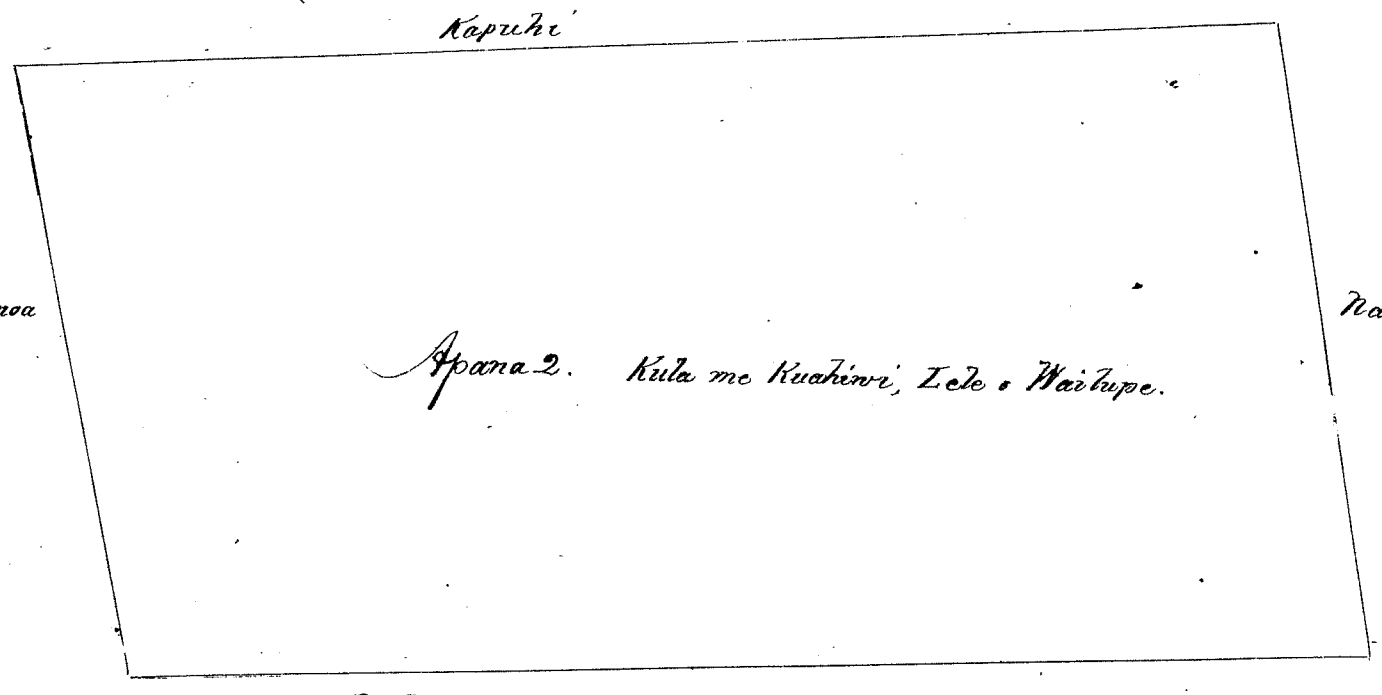 Kapuhi
noa
Na
Apana 2. Kula me Kuahiwi, Lele o Wailupe.